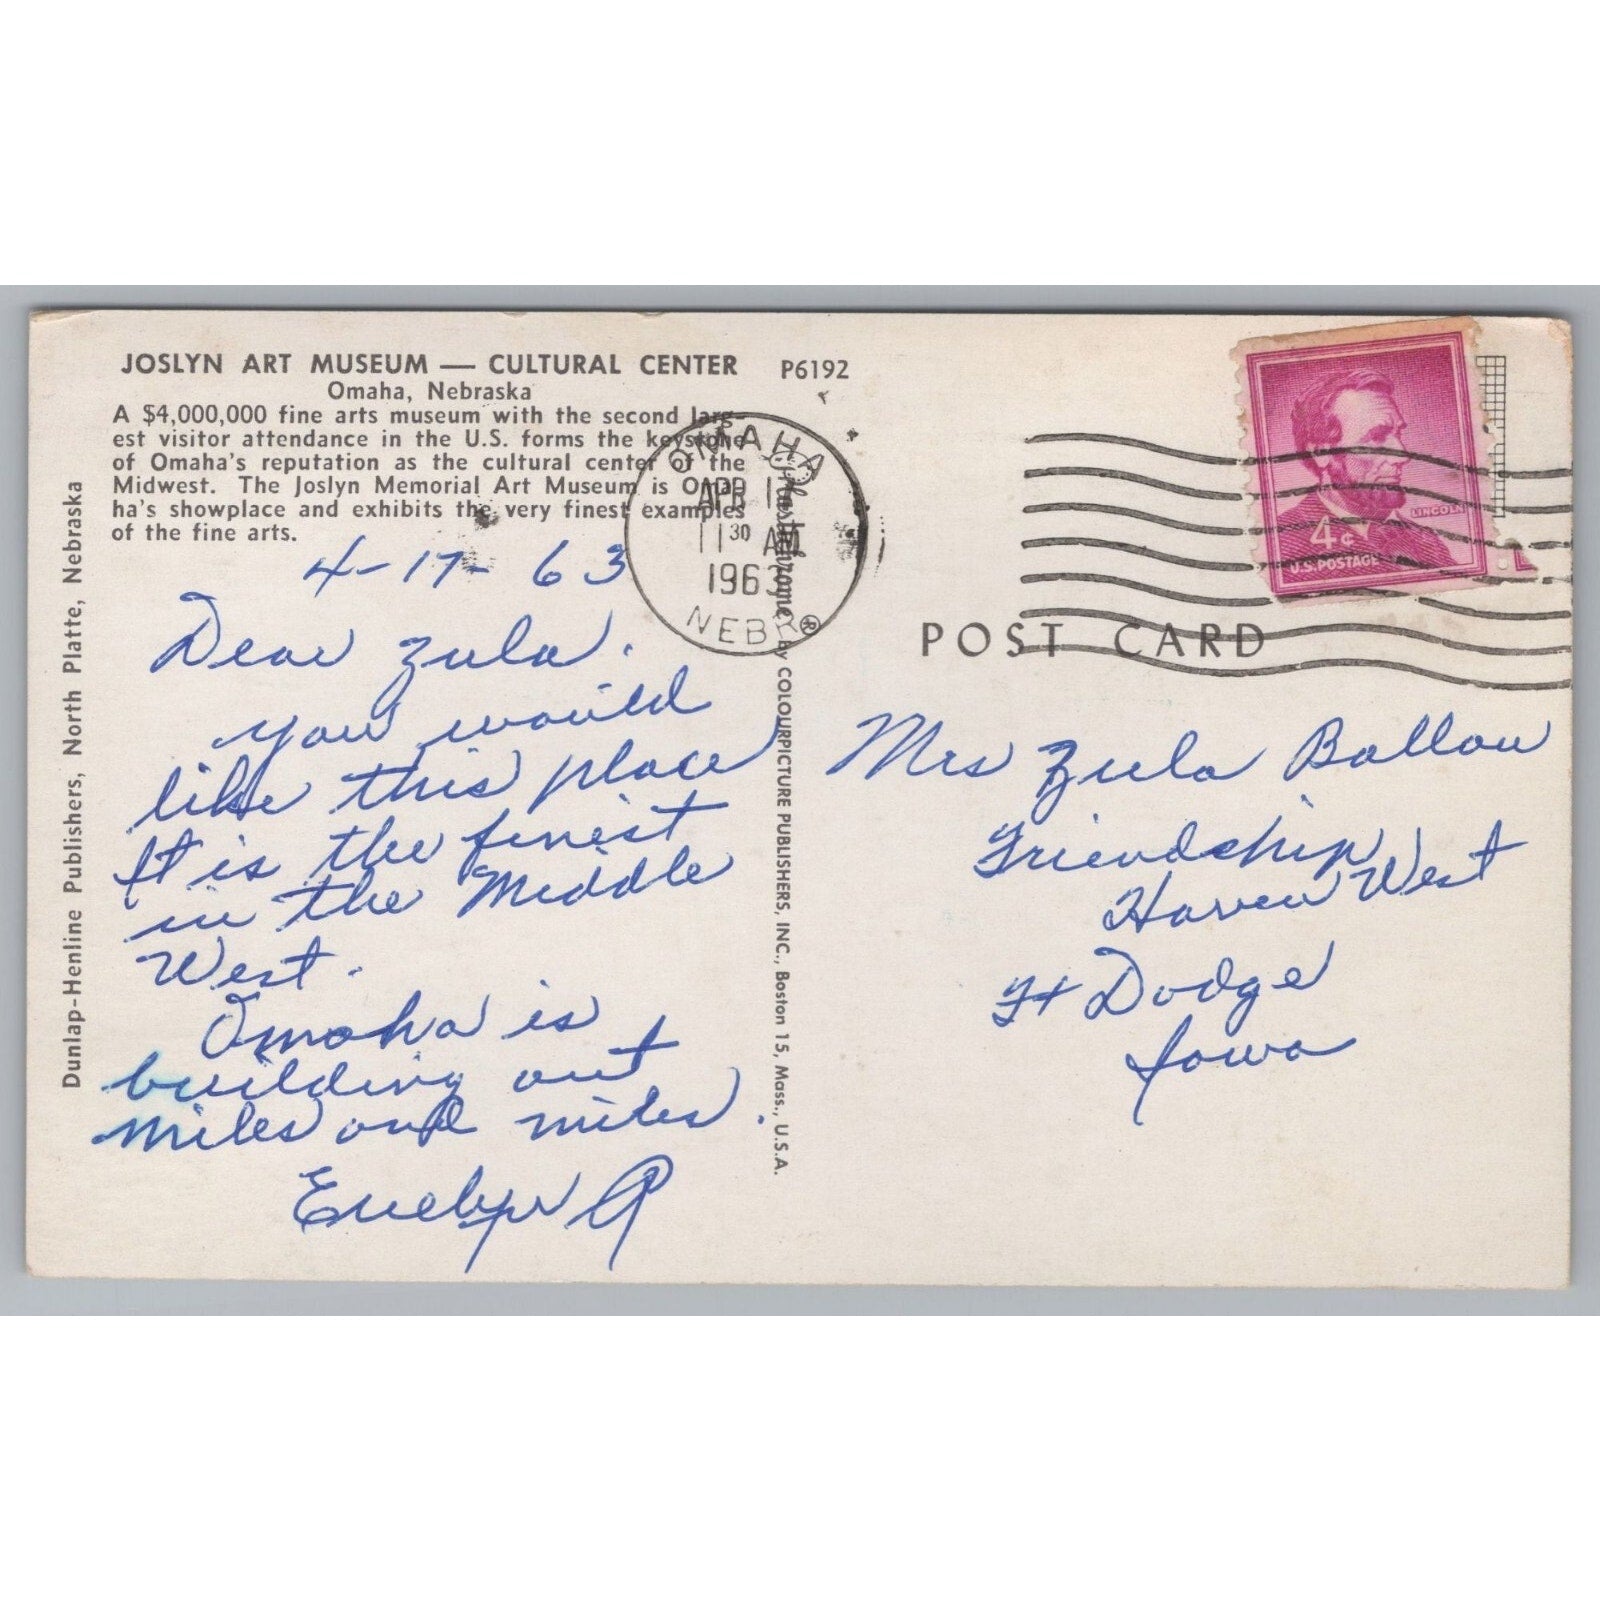 JOSLYN ART MUSEUM — CULTURAL CENTER
Omaha, Nebraska
A $4,000,000 fine arts museum with the second larg-
est visitor attendance in the U.S. forms the keystone
of Omaha's reputation as the cultural center of the
Midwest. The Joslyn Memorial Art Museum is Oma-
ha's showplace and exhibits the very finest examples
of the fine arts.
P6192
Dunlap-Henline Publishers, North Platte, Nebraska
4-17-63
Dear Zula.
You would
like this place
It is the finest
in the Middle
West.
Omaha is
building out
miles and miles.
Evelyn A
Plastichrome® by COLOURPICTURE PUBLISHERS, INC., Boston 15, Mass., U.S.A.
OMAHA
APR 17
11 30 AM
1963
NEBR
LINCOLN
4¢
U.S. POSTAGE
POST CARD
Mrs Zula Ballou
Friendship
Haven West
Ft Dodge
Iowa